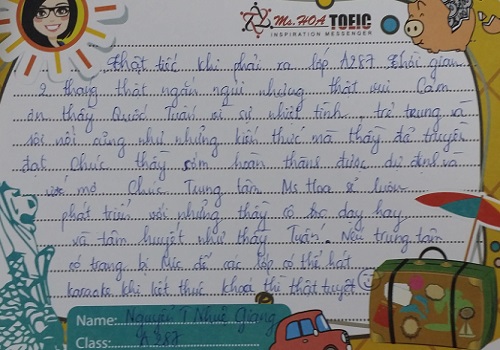 Ms. HOA TOEIC
INSPIRATION MESSENGER
Thật tiếc khi phải xa lớp A287. Thời gian
2 tháng thật ngắn ngủi nhưng thật vui. Cảm
ơn thầy Quốc Tuấn vì sự nhiệt tình, trẻ trung và
sôi nổi cũng như những kiến thức mà thầy đã truyền
đạt. Chúc thầy sớm hoàn thành được dự định và
ước mơ. Chúc Trung tâm Ms Hoa sẽ luôn
phát triển với những thầy cô dạy hay
và tâm huyết như thầy Tuấn. Nếu trung tâm
có trang bị mic để các lớp có thể hát
karaoke khi kết thúc khoá thì thật tuyệt
Name: Nguyễn T Như Giang
Class: A 287